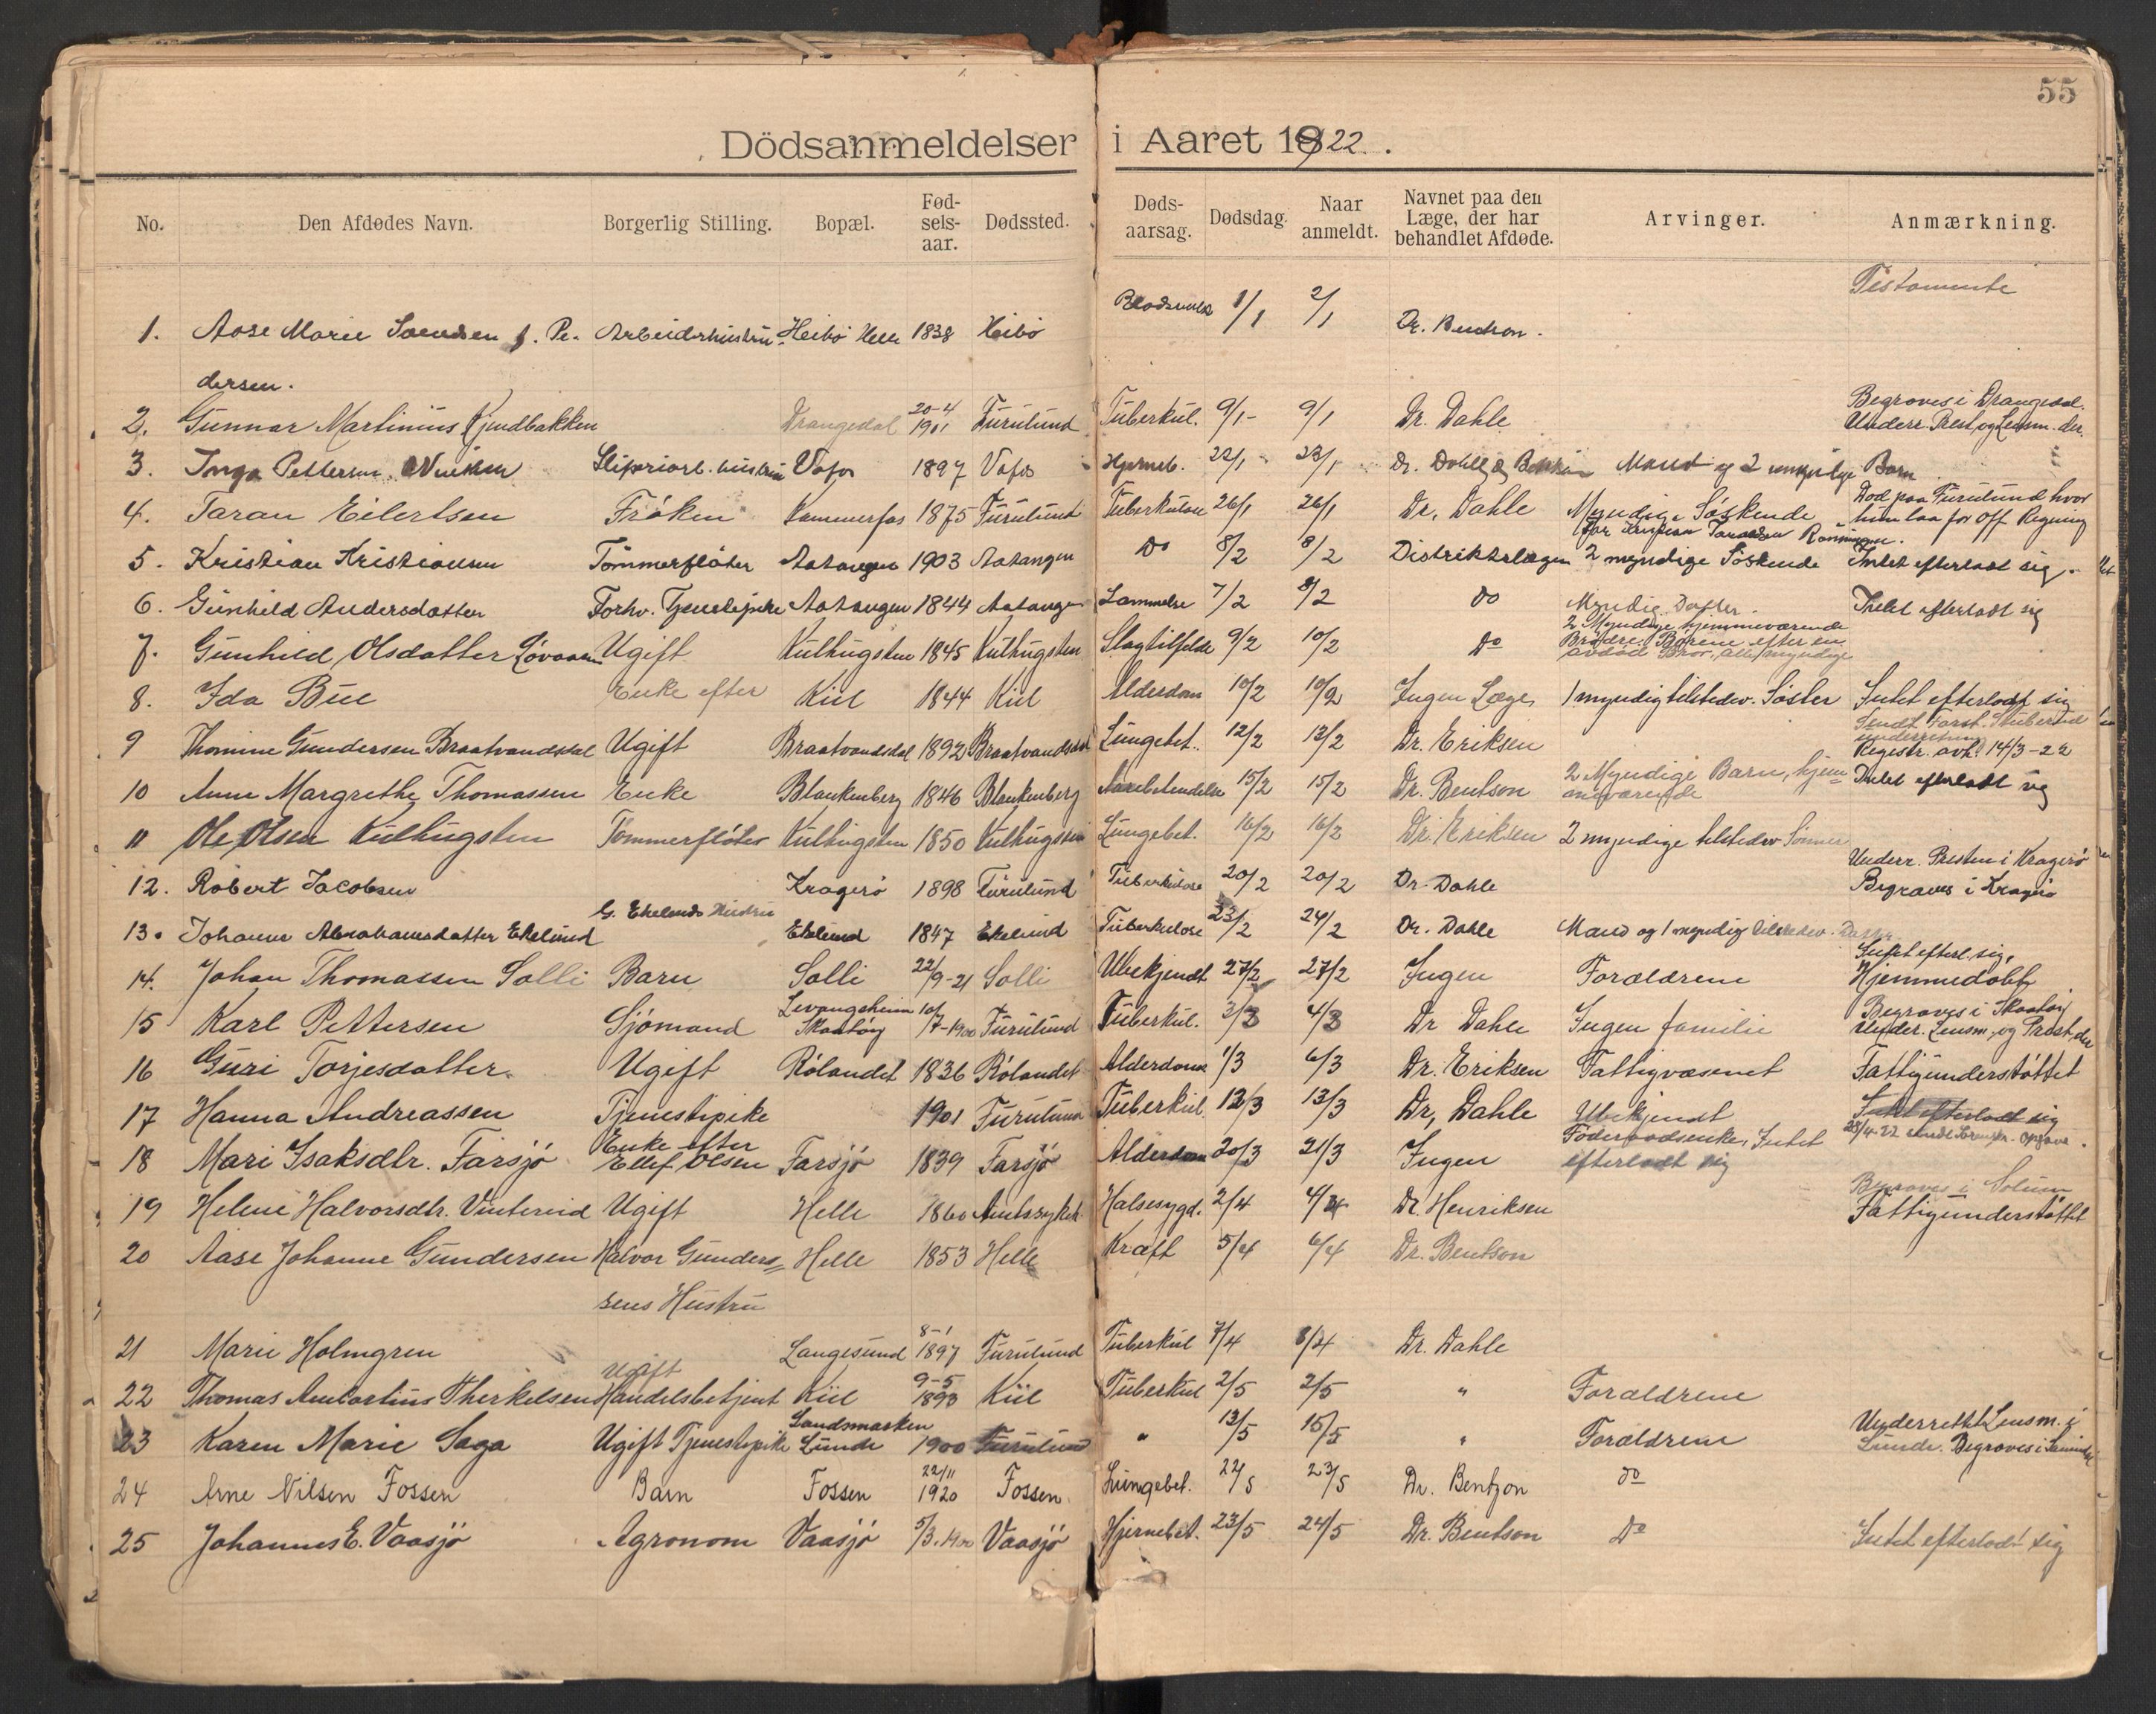 55
Dödsanmeldelser i Aaret 1922.
No. Den Afdødes Navn. Borgerlig Stilling. Bopæl. Fød-sels-aar. Dødssted. Døds-aarsag. Dødsdag. Naar anmeldt. Navnet paa den Læge, der har behandlet Afdøde. Arvinger. Anmærkning.
Testamente
1. Aase Marie f. Pe- Arbeiderhustru Heibö Helle 1838 Heibö 1/1 2/1 Dr. Bentson.
dersen.
20-4 Begraves i Drangedal.
2. Gunnar Martinius Kjendbakken Drangedal 1901 Furulund Tuberkul. 9/1- 9/1 Dr. Dahle Underr. Prest og Lensm. der.
3. Inga Pettersen Sliperiarb. hustru Vafos 1897 Vafos Hjerneb. 22/1 23/1 Dr. Dahle og Mand og 2 umyndige Barn
Død paa Furulund hvor
4. Taran Eilertsen Fröken Kammerfos 1875 Furulund Tuberkulose 26/1 26/1 Dr. Dahle Myndige Söskende hun laa for Off Regning
5. Kristian Kristiansen Tömmerflöter Aatangen 1903 Aatangen Do 8/2 8/2 Distriktslægen 2 myndige Söskende Intet efterladt sig.
6. Gunhild Andersdatter Forhv. Tjenestepike Aatangen 1844 Aatangen Lammelse 7/2 8/2 do Myndig Datter. Intet efterladt sig
2 Myndige hjemmeværende
7. Gunhild Olsdatter Lövaasen Ugift Kulhugsten 1845 Kulhugsten Slagtilfelde 9/2 10/2 do Brödre. Barene efter en
avdöd Bror, alle myndige
8. Ida Bue Enke efter Kiil 1844 Kiil Alderdom 10/2 10/2 Ingen Læge 1 myndig tilstedev. Söster Intet efterladt sig
Sendt Forst.
underretning
9 Thomine Gundersen Braatvandsdal Ugift Braatvandsdal 1892 Braatvandsdal Lungebet. 12/2 13/2 Dr. Eriksen Registr. avh. 14/3-22
10 Anne Margrethe Thomassen Enke Blankenberg 1846 Blankenberg 15/2 15/2 Dr. Bentson 2 Myndige Barn, hjem= Intet efterladt sig
meværende
11 Ole Olsen Kulhugsten Tömmerflöter Kulhugsten 1850 Kulhugsten Lungebet. 16/2 16/2 Dr. Eriksen 2 myndige tilstedev Sönner
Underr. Presten i Kragerö
12. Robert Jacobsen Kragerö 1898 Furulund Tuberkulose 20/2 20/2 Dr. Dahle Begraves i Kragerö
G. Ekelunds Hustru
13. Johanne Abrahamsdatter Ekelund Ekelund 1847 Ekelund Tuberkulose 23/2 24/2 Dr. Dahle Mand og 1 myndig tilstedev. Datter
Intet efterl. sig.
14. Johan Thomassen Solli Barn Solli 22/9-21 Solli Ubekjendt 27/2 27/2 Ingen Forældrene Hjemmedöbt
Levangsheim Begraves i Skaatöy
15 Karl Pettersen Sjömand Skaatöy 10/7-1900 Furulund Tuberkul. 3/3 4/3 Dr Dahle Ingen familie Under. Lensm. og Prest der
16 Guri Torjesdatter. Ugift Rölandet 1836 Rölandet Alderdom 1/3 6/3 Dr. Eriksen Fattigvæsenet Fattigunderstöttet
17 Hanna Andreassen Tjenestepike 1901 Furulund Tuberkul. 12/3 13/3 Dr, Dahle Ubekjendt Intet efterladt sig
Enke efter Föderaadsenke, Intet 28/4-22
18 Mari Isaksdtr. Farsjö Ellef Olsen Farsjö 1839 Farsjö Alderdom 20/3 21/3 Ingen efterladt sig
Begraves i Solum
19 Helene Halvorsdtr. Vintereid Ugift Helle 1860 Amtssykeh. Halsesygd. 2/4 4/4 Dr. Henriksen Fattigunderstöttet
20 Aase Johanne Gundersen Halvor Gunders= Helle 1853 Helle Kræft 5/4 6/4 Dr. Bentson
sens Hustru
8-1
21 Marie Holmgren Langesund 1897 Furulund Tuberkul 7/4 8/4 Dr. Dahle
Ugift 9-5
22 Thomas Therkelsen Handelsbetjent Kiil 1893 Kiil Tuberkul 2/5 2/5 " Forældrene
Landsmarken Underrettet Lensm. i
23 Karen Marie Saga Ugift Tjenestepike Lunde 1900 Furulund " 13/5 15/5 " Forældrene Lunde. Begraves i Lunde
22/11
24 Arne Nilsen Fossen Barn Fossen 1920 Fossen Lungebet. 22/5 23/5 Dr. Bentzon do
25 Johannes E. Vaasjö Agronom Vaasjö 5/3.1900 Vaasjö Hjernebet. 23/5 24/5 Dr. Bentson Do Intet efterladt sig